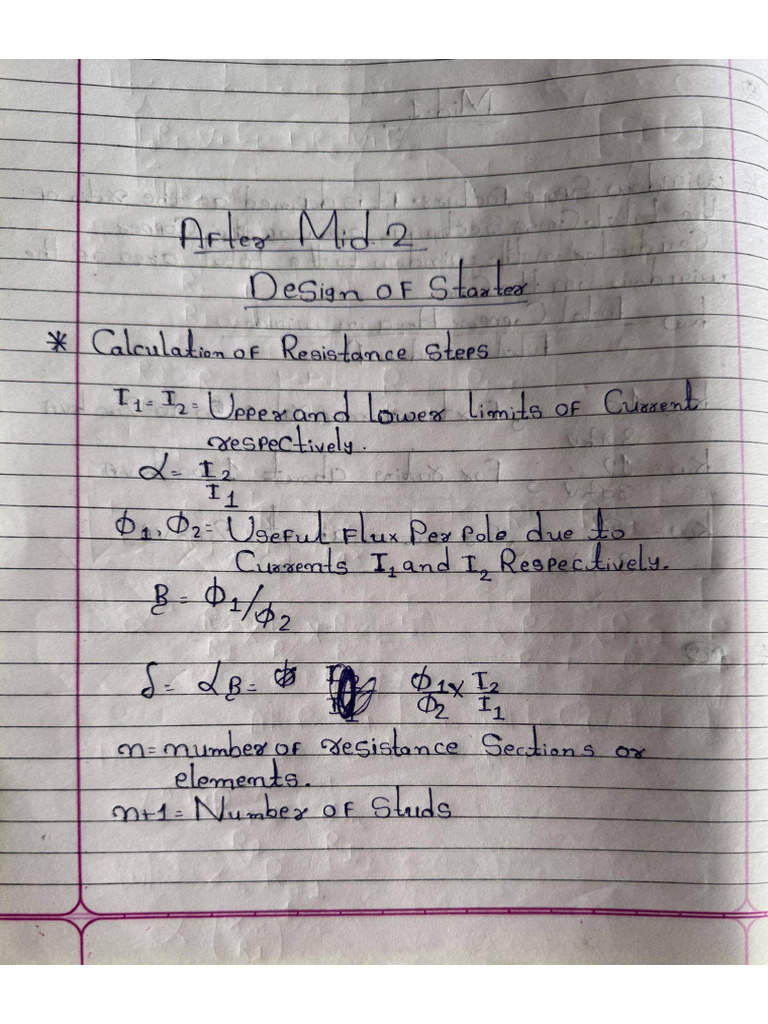 After Mid 2
Design of Starter
* Calculation of Resistance Steps
I1 = I2 = Upper and lower limits of Current
respectively.
α = I2/I1
Φ1, Φ2 = Useful Flux Per Pole due to
Currents I1 and I2 Respectively.
B = Φ1/Φ2
δ = αB = Φ1/Φ2 × I2/I1
n = number of resistance Sections or
elements.
n+1 = Number of Studs